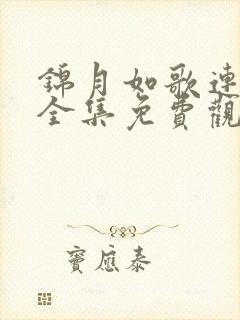 錦月如歌連
全集免費觀
竇應泰